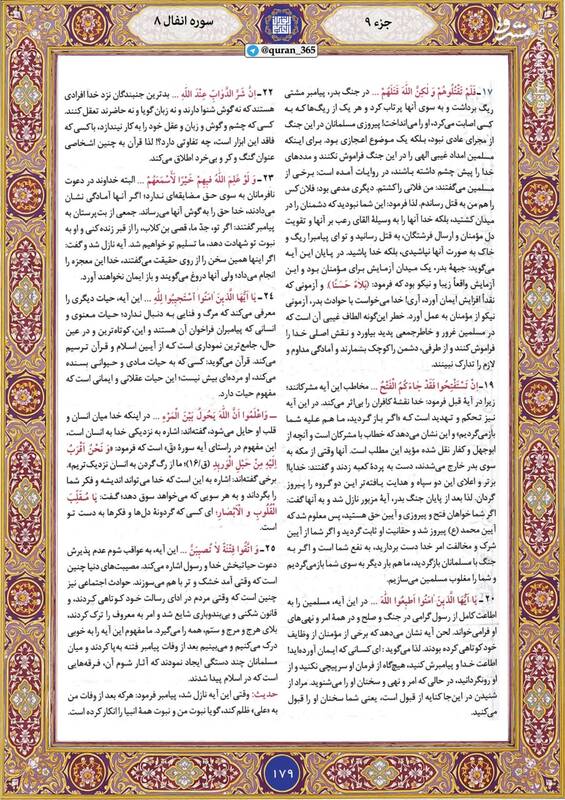 جزء ۹
سوره انفال ۸
@quran_365
۱۷ـ فَلَمْ تَقْتُلُوهُمْ وَ لَكِنَّ اللهَ قَتَلَهُمْ ... در جنگ بدر، پیامبر مشتی
ریگ برداشت و به سوی آنها پرتاب کرد و هر یک از ریگ‌ها که به
کسی اصابت می‌کرد، او را می‌انداخت! پیروزی مسلمانان در این جنگ
از مجرای عادی نبود، بلکه یک موضوع اعجازی بود. برای اینکه
مسلمین امداد غیبی الهی را در این جنگ فراموش نکنند و مددهای
خدا را پیش چشم داشته باشند، در روایات آمده است: برخی از
مسلمین می‌گفتند: من فلانی را کشتم. دیگری مدعی بود: فلان کس
را هم من به قتل رساندم. لذا فرمود: این شما نبودید که دشمنان را در
میدان کشتید، بلکه خدا آنها را به وسیلهٔ القای رعب بر آنها و تقویت
دل مؤمنان و ارسال فرشتگان، به قتل رسانید و تو ای پیامبر! ریگ و
خاک به صورت آنها نپاشیدی، بلکه خدا پاشید. در پایان این آیه
می‌گوید: جبههٔ بدر، یک میدان آزمایش برای مؤمنان بود و این
آزمایش واقعاً زیبا و نیکو بود که فرمود: (بَلَاءً حَسَنًا). و آزمونی که
نقداً افزایش ایمان آورد، آری! خدا می‌خواست با حوادث بدر، آزمونی
نیکو از مؤمنان به عمل آورد. خطر این‌گونه الطاف غیبی آن است که
در مسلمین غرور و خاطرجمعی پدید بیاورد و نقش اصلی خدا را
فراموش کنند و از طرفی، دشمن را کوچک بشمارند و آمادگی مداوم و
لازم را تدارک نبینند.
۱۹ـ إِنْ تَسْتَفْتِحُوا فَقَدْ جَاءَكُمُ الْفَتْحُ ... مخاطب این آیه مشرکانند؛
زیرا در آیهٔ قبل فرمود: خدا نقشهٔ کافران را بی‌اثر می‌کند. در این آیه
نیز تحکم و تهدید است که «اگر باز گردید، ما هم علیه شما
بازمی‌گردیم» و این نشان می‌دهد که خطاب با مشرکان است و آنچه از
ابوجهل و کفار نقل شده مؤید این مطلب است. آنها وقتی از مکه به
سوی بدر خارج می‌شدند، دست به پردهٔ کعبه زدند و گفتند: خدایا!
برتر و اعلای این دو سپاه و هدایت یافته‌تر این دو گروه را پیروز
گردان. لذا بعد از پایان جنگ بدر، آیهٔ مزبور نازل شد و به آنها گفت:
اگر شما خواهان فتح و پیروزی و آیین حق هستید، پس معلوم شد که
آیین محمد (ع) پیروز شد و حقانیت او ثابت گردید و اگر شما از آیین
شرک و مخالفت امر خدا دست بردارید، به نفع شما است و اگر به
جنگ با مسلمانان بازگردید، ما هم بار دیگر به سوی شما بازمی‌گردیم
و شما را مغلوب مسلمین می‌سازیم.
۲۰ـ يَا أَيُّهَا الَّذِينَ آمَنُوا أَطِيعُوا اللَّهَ ... در این آیه، مسلمین را به
اطاعت کامل از رسول گرامی در جنگ و صلح و در همهٔ امر و نهی‌های
او فرامی‌خواند. لحن آیه نشان می‌دهد که برخی از مؤمنان از وظایف
خود کوتاهی کرده بودند. لذا می‌گوید: ای کسانی که ایمان آورده‌اید!
اطاعت خدا و پیامبرش کنید، هیچ‌گاه از فرمان او سرپیچی نکنید و از
او رونگردانید، در حالی که امر و نهی و سخنان او را می‌شنوید. مراد از
شنیدن در این‌جا کنایه از قبول است، یعنی شما سخنان او را قبول
می‌کنید.
۲۲ـ إِنَّ شَرَّ الدَّوَابِّ عِنْدَ اللَّهِ ... بدترین جنبندگان نزد خدا افرادی
هستند که نه گوش شنوا دارند و نه زبان گویا و نه حاضرند تعقل کنند.
کسی که چشم و گوش و زبان و عقل خود را به کار نیندازد، با کسی که
فاقد این ابزار است، چه تفاوتی دارد؟! لذا قرآن به چنین اشخاصی
عنوان گنگ و کر و بی‌خرد اطلاق می‌کند.
۲۳ـ وَ لَوْ عَلِمَ اللَّهُ فِيهِمْ خَيْرًا لَأَسْمَعَهُمْ ... البته خداوند در دعوت
نافرمانان به سوی حق مضایقه‌ای ندارد؛ اگر آنها آمادگی نشان
می‌دادند، خدا حق را به گوش آنها می‌رساند. جمعی از بت‌پرستان به
پیامبر گفتند: اگر تو، جدّ ما، قصی بن کلاب، را از قبر زنده کنی و او به
نبوت تو شهادت دهد، ما تسلیم تو خواهیم شد. آیه نازل شد و گفت:
اگر اینها همین سخن را از روی حقیقت می‌گفتند، خدا این معجزه را
انجام می‌داد؛ ولی آنها دروغ می‌گویند و باز ایمان نخواهند آورد.
۲۴ـ يَا أَيُّهَا الَّذِينَ آمَنُوا اسْتَجِيبُوا لِلَّهِ ... این آیه، حیات دیگری را
معرفی می‌کند که مرگ و فنایی به دنبال ندارد؛ حیات معنوی و
انسانی که پیامبران فراخوان آن هستند و این، کوتاه‌ترین و در عین
حال، جامع‌ترین نموداری است که از آیین اسلام و قرآن ترسیم
می‌کند. قرآن می‌گوید: کسی که به حیات مادی و حیوانی بسنده
می‌کند، او مرده‌ای بیش نیست؛ این حیات عقلانی و ایمانی است که
مفهوم حیات دارد.
ـ وَ اعْلَمُوا أَنَّ اللَّهَ يَحُولُ بَيْنَ الْمَرْءِ ... در اینکه خدا میان انسان و
قلب او حایل می‌شود، گفته‌اند: اشاره به نزدیکی خدا به انسان است،
این مفهوم در راستای آیه سورهٔ «ق» است که فرمود: «وَ نَحْنُ أَقْرَبُ
إِلَيْهِ مِنْ حَبْلِ الْوَرِيدِ (ق/۱۶)؛ ما از رگ گردن به انسان نزدیک‌تریم».
برخی گفته‌اند: اشاره به این است که خدا می‌تواند اندیشه و فکر شما
را بگرداند و به هر سویی که می‌خواهد سوق دهد؛ گفت: يَا مُقَلِّبَ
الْقُلُوبِ وَ الْأَبْصَارِ؛ ای کسی که گردونهٔ دل‌ها و فکرها به دست تو
است.
۲۵ـ وَ اتَّقُوا فِتْنَةً لَا تُصِيبَنَّ ... این آیه، به عواقب شوم عدم پذیرش
دعوت حیاتبخش خدا و رسول اشاره می‌کند. مصیبت‌های دنیا چنین
است که وقتی آمد خشک و تر با هم می‌سوزند. حوادث اجتماعی نیز
چنین است که وقتی مردم در ادای رسالت خود کوتاهی کردند، و
قانون شکنی و بی‌بندوباری شایع شد و امر به معروف را ترک کردند،
بلای هرج و مرج و ستم، همه را می‌گیرد. ما مفهوم این آیه را به خوبی
درک می‌کنیم و می‌بینیم بعد از وفات پیامبر فتنه به‌پا کردند و میان
مسلمانان چند دستگی ایجاد نمودند که از آثار شوم آن، فرقه‌هایی
است که در اسلام پیدا شدند.
حدیث: وقتی این آیه نازل شد، پیامبر فرمود: هرکه بعد از وفات من
به «علی» ظلم کند، گویا نبوت من و نبوت همهٔ انبیا را انکار کرده است.
۱۷۹